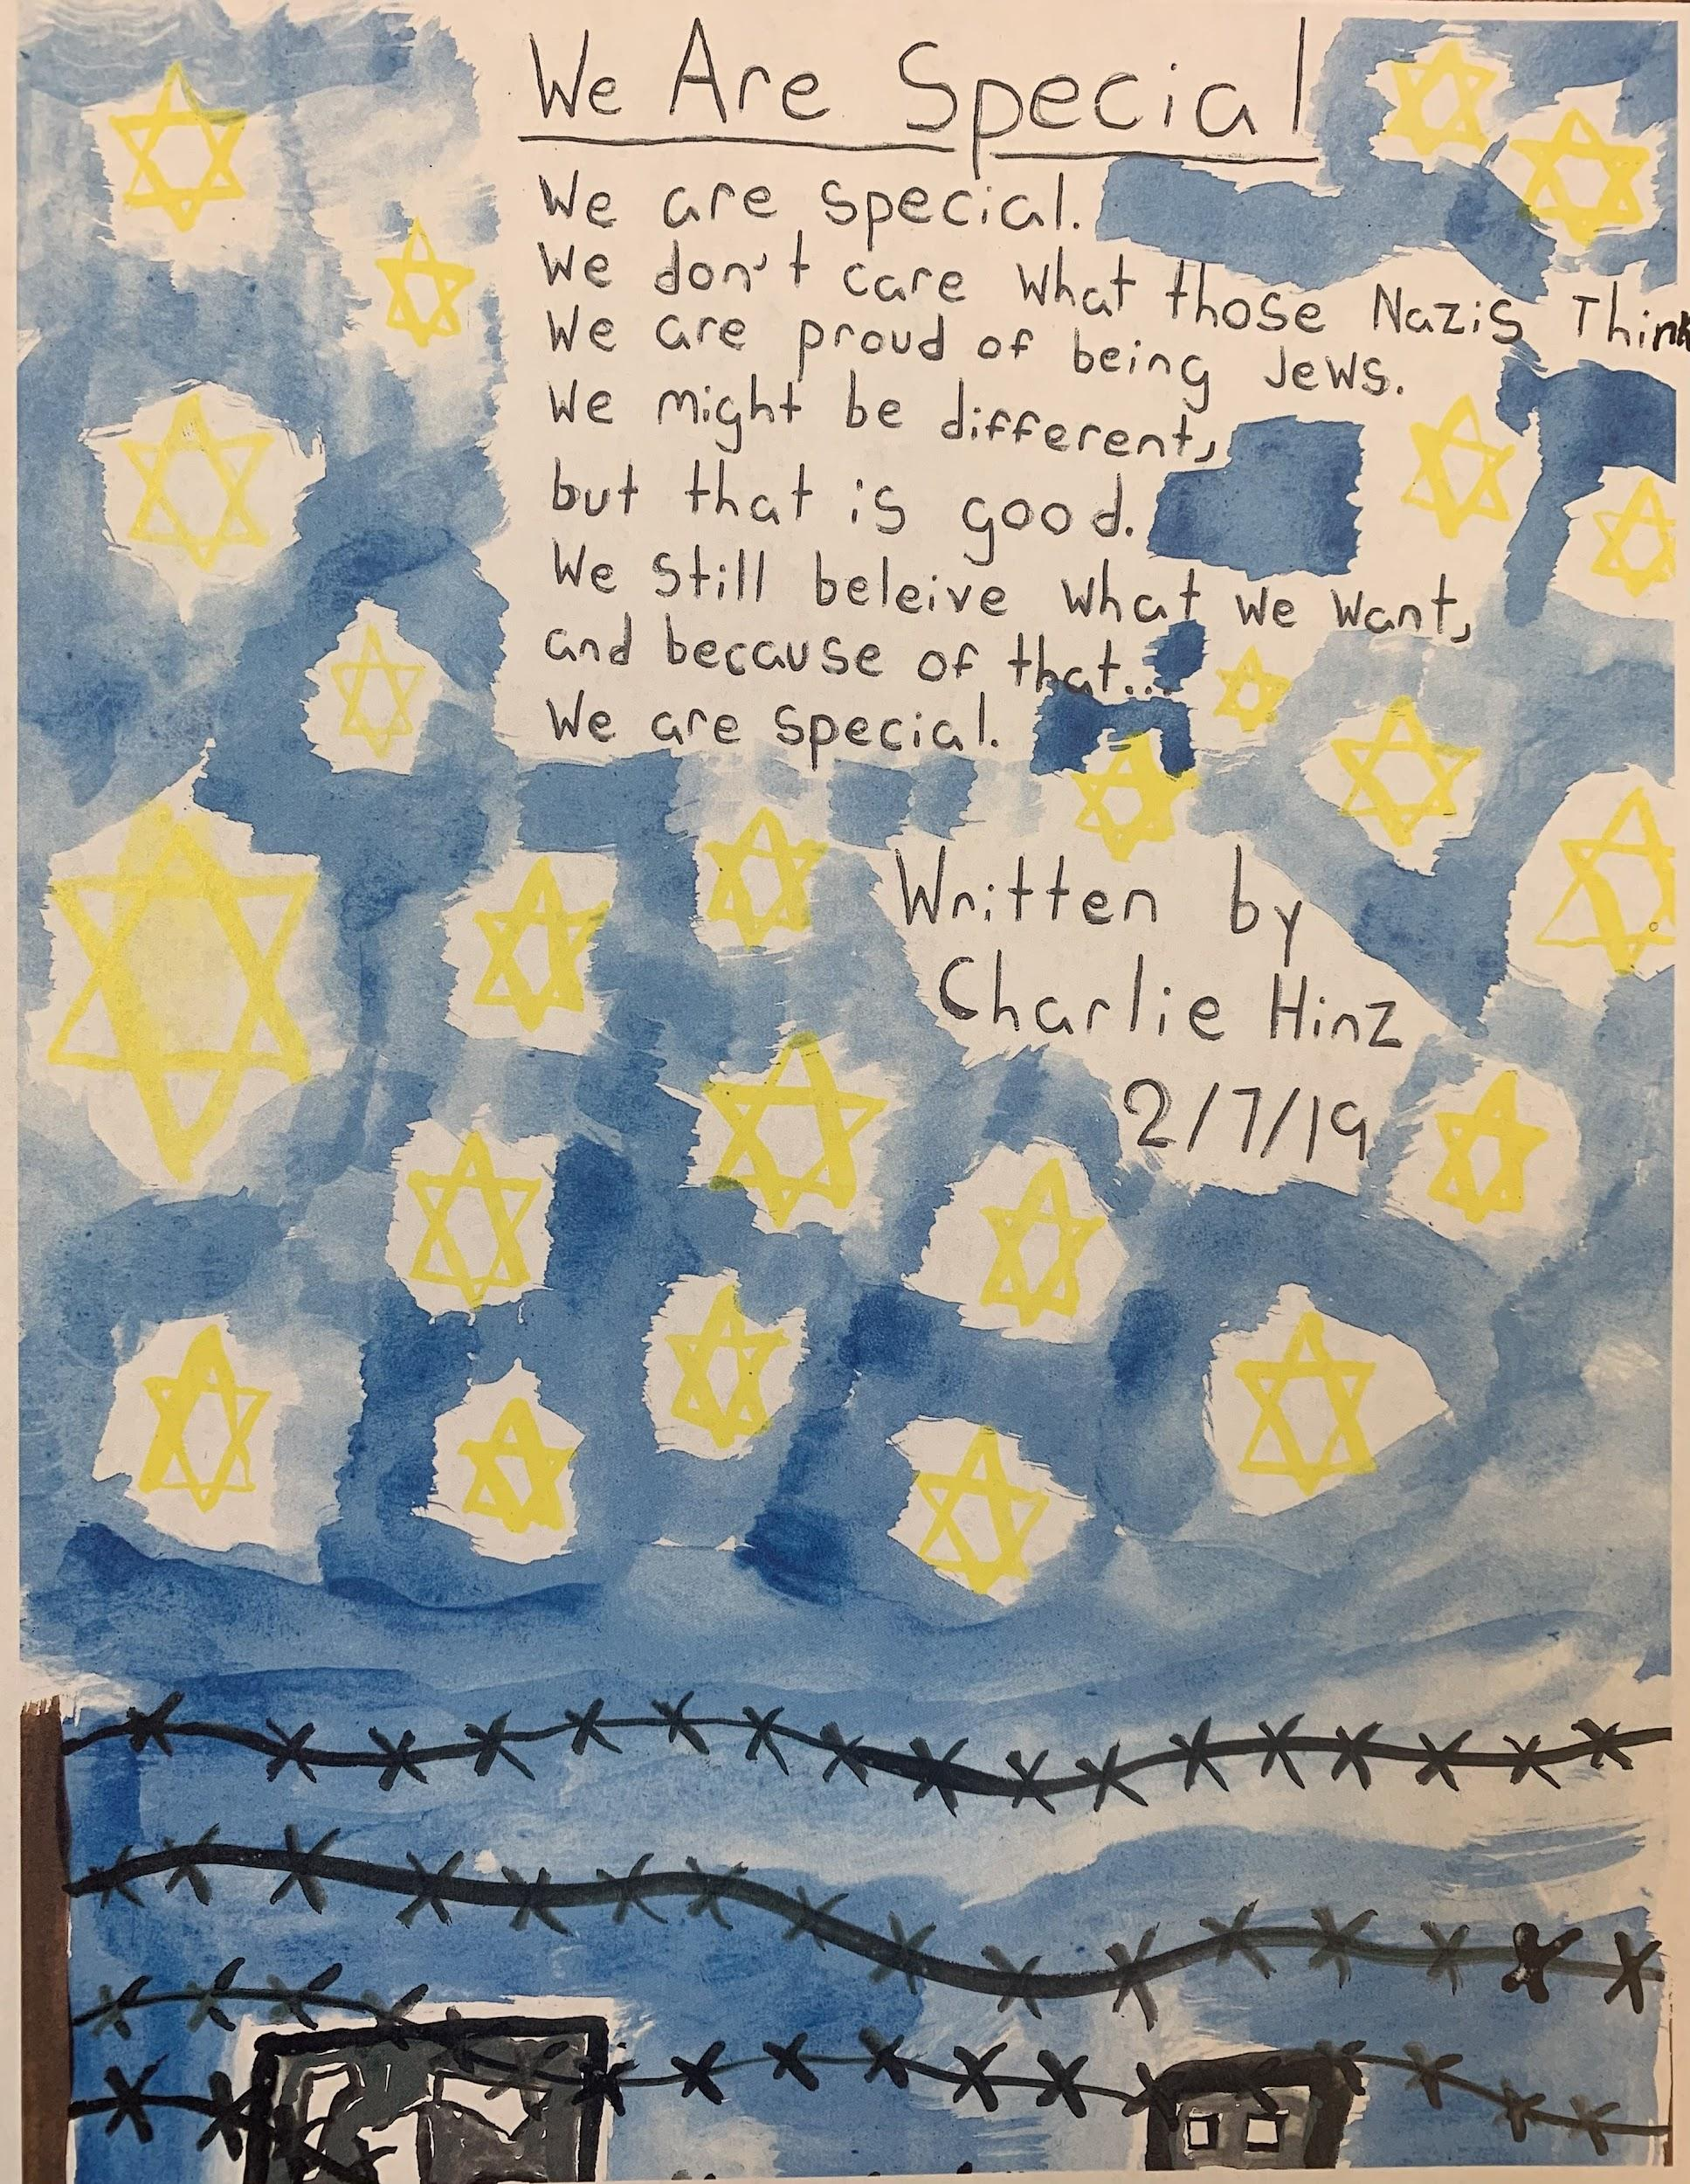 We Are Special
We are special.
We don't care what those Nazis Think
We are proud of being Jews.
We might be different,
but that is good.
We still beleive what we want,
and because of that...
We are special.
Written by
Charlie Hinz
2/7/19